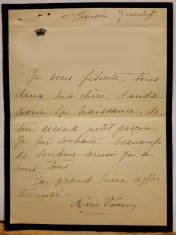 Je vous félicite tous
deux ma chère
pour la naissance de
ton second petit garçon
Je lui souhaite beaucoup
de bonheur ainsi qu'à
vous tous
Ta grand'mère affec
tionnée
Marie